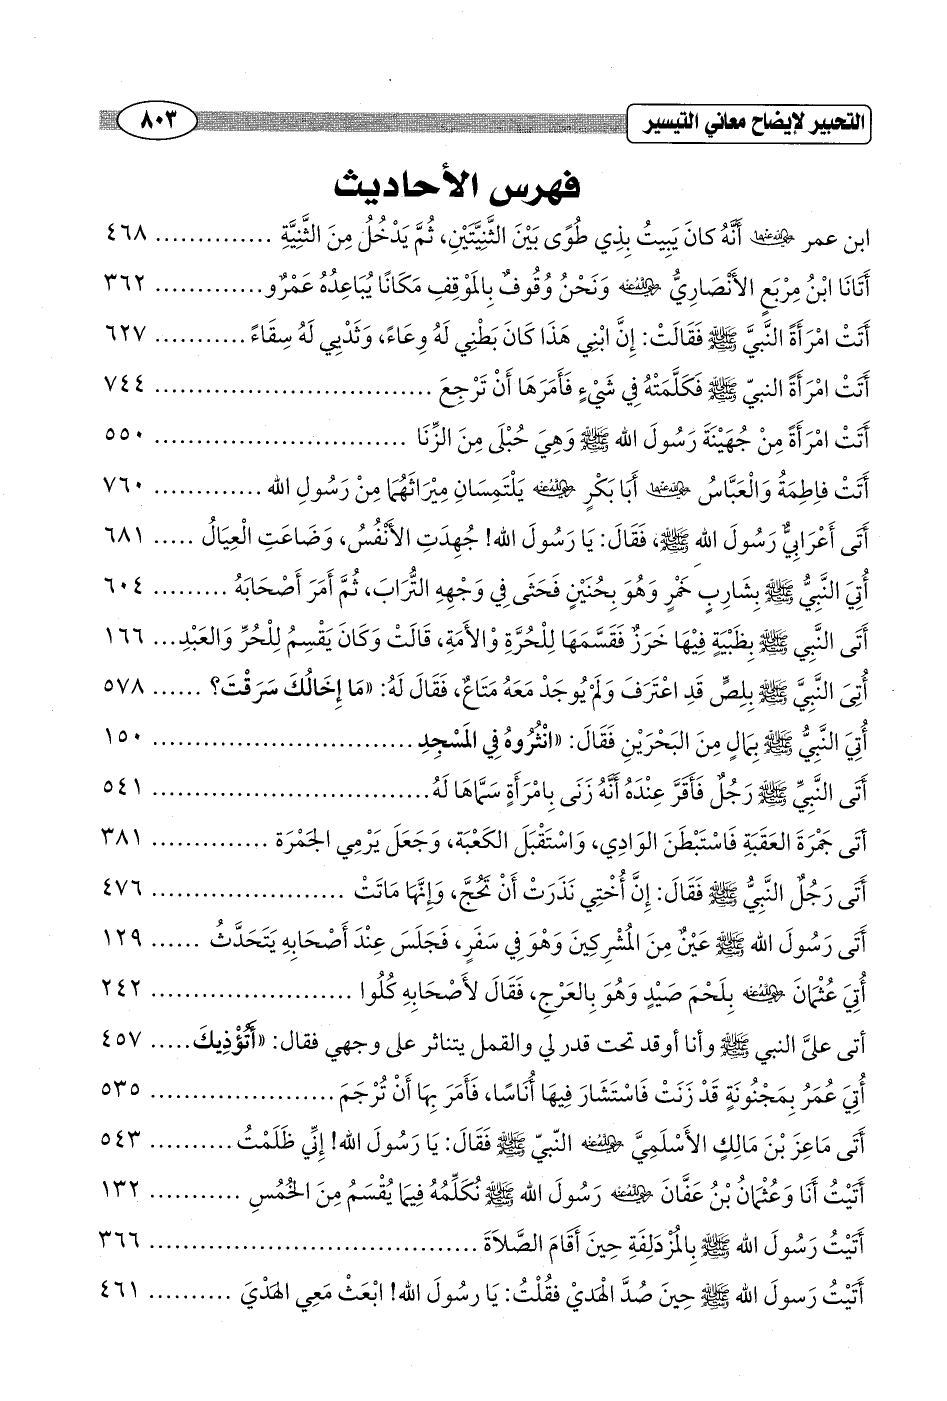 التحبير لإيضاح معاني التيسير
٨٠٣
فهرس الأحاديث
ابن عمر رضي الله عنهما أَنَّهُ كانَ يَبِيتُ بِذِي طُوًى بَيْنَ الثَّنِيَّتَيْنِ، ثُمَّ يَدْخُلُ مِنَ الثَّنِيَّةِ ............. ٤٦٨
أَتَانَا ابْنُ مِرْبَعٍ الأَنْصَارِيُّ رضي الله عنه وَنَحْنُ وُقُوفٌ بِالمَوْقِفِ مَكَانًا يُبَاعِدُهُ عَمْرٌو ............. ٣٦٢
أَتَتْ امْرَأَةً النَّبِيَّ ﷺ فَقَالَتْ: إِنَّ ابْنِي هَذَا كَانَ بَطْنِي لَهُ وِعَاءً، وَثَدْيِي لَهُ سِقَاءً ........... ٦٢٧
أَتَتْ امْرَأَةً النبيّ ﷺ فَكَلَّمَتْهُ فِي شَيْءٍ فَأَمَرَهَا أَنْ تَرْجِعَ ................................ ٧٤٤
أَتَتْ امْرَأَةً مِنْ جُهَيْنَةَ رَسُولَ الله ﷺ وَهِيَ حُبْلَى مِنَ الزِّنَا ............................. ٥٥٠
أَتَتْ فاطِمَةُ وَالْعَبَّاسُ رضي الله عنهما أَبَا بَكْرٍ رضي الله عنه يَلْتَمِسَانِ مِيْرَاثَهُمَا مِنْ رَسُولِ الله ............. ٧٦٠
أَتَى أَعْرَابِيٌّ رَسُولَ الله ﷺ، فَقَالَ: يا رَسُولَ الله! جُهِدَتِ الأَنْفُسُ، وَضَاعَتِ الْعِيَالُ ..... ٦٨١
أُتِيَ النَّبِيُّ ﷺ بِشَارِبِ خَمْرٍ وَهُوَ بِحُنَيْنٍ فَحَثَى فِي وَجْهِهِ التُّرَابَ، ثُمَّ أَمَرَ أَصْحَابَهُ ......... ٦٠٤
أَتَى النَّبِي ﷺ بِظَبْيَةٍ فِيْهَا خَرَزٌ فَقَسَّمَهَا لِلْحُرَّةِ وْالأَمَةِ، قَالَتْ وَكَانَ يَقْسِمُ لِلْحُرِّ وَالعَبْدِ... ١٦٦
أُتِىَ النَّبِيَّ ﷺ بِلِصٍّ قَدِ اعْتَرَفَ وَلَمْ يُوجَدْ مَعَهُ مَتَاعٌ، فَقَالَ لَهُ: «مَا إِخَالُكَ سَرَقْتَ؟ ...... ٥٧٨
أُتِيَ النَّبِيُّ ﷺ بِمَالٍ مِنَ البَحْرَيْنِ فَقَالَ: «انْثُرُوهُ فِي المَسْجِدِ .............................. ١٥٠
أَتَى النَّبِيِّ ﷺ رَجُلٌ فَأَقَرَّ عِنْدَهُ أَنَّهُ زَنَى بِامْرَأَةٍ سَمَّاهَا لَهُ ................................ ٥٤١
أَتَى جَمْرَةَ العَقَبَةِ فَاسْتَبْطَنَ الوَادِي، وَاسْتَقْبَلَ الكَعْبَةَ، وَجَعَلَ يَرْمِي الجَمْرَةَ ............. ٣٨١
أَتَى رَجُلٌ النبيُّ ﷺ فَقَالَ: إِنَّ أُخْتِي نَذَرَتْ أَنْ تَحُجَّ، وَإِنَّهَا مَاتَتْ ..................... ٤٧٦
أَتَى رَسُولَ الله ﷺ عَيْنٌ مِنَ المُشْرِكِينَ وَهْوَ فِي سَفَرٍ، فَجَلَسَ عِنْدَ أَصْحَابِهِ يَتَحَدَّثُ ...... ١٢٩
أُتِيَ عُثْمَانَ رضي الله عنه بِلَحْمِ صَيْدٍ وَهُوَ بِالعَرْجِ، فَقَالَ لأَصْحَابِهِ كُلُوا ....................... ٢٤٢
أتى عليَّ النبي ﷺ وأنا أوقد تحت قدر لي والقمل يتناثر على وجهي فقال: «أَتُؤْذِيكَ..... ٤٥٧
أُتِيَ عُمَرُ بِمَجْنُونَةٍ قَدْ زَنَتْ فَاسْتَشَارَ فِيهَا أُنَاسًا، فَأَمَرَ بِهَا أَنْ تُرْجَمَ ..................... ٥٣٥
أَتَى مَاعِزَ بْنَ مَالِكٍ الأَسْلَمِيَّ رضي الله عنه النبيّ ﷺ فَقَالَ: يا رَسُولَ الله! إِنِّي ظَلَمْتُ .......... ٥٤٣
أَتَيْتُ أَنَا وَعُثْمَانُ بْنُ عَفَّانَ رضي الله عنه رَسُولَ الله ﷺ نُكَلِّمُهُ فِيمَا يُقْسَمُ مِنَ الخُمُسِ ........... ١٣٢
أَتَيْتُ رَسُولَ الله ﷺ بِالمُزْدَلِفَةِ حِينَ أَقَامَ الصَّلاَةَ ...................................... ٣٦٦
أَتَيْتُ رَسولَ الله ﷺ حِينَ صُدَّ الهَديْ فقُلْتُ: يَا رسُولَ الله! ابْعَثْ مَعِي الهَدْيَ .......... ٤٦١